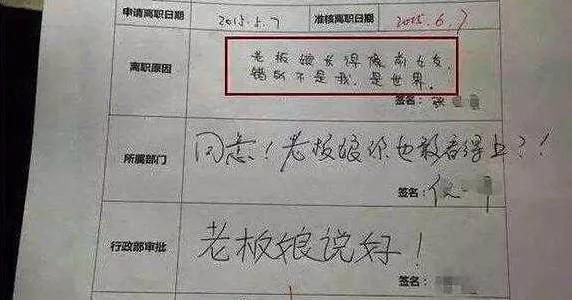 申请离职日期 2015.5.7 准核离职日期 2015.6.7
离职原因
老板娘长得像前女友,
错的不是我,是世界。
签名: 张
所属部门
同意!老板娘你也敢看得上?!
签名:
行政部审批
老板娘说好!
签名: